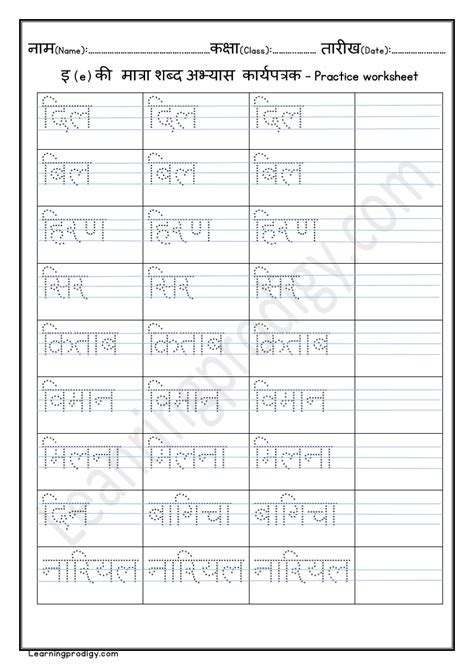 नाम(Name):............................कक्षा(Class):............. तारीख(Date):..................
इ (e) की मात्रा शब्द अभ्यास कार्यपत्रक - Practice worksheet
दिल दिल दिल
बिल बिल बिल
हिरण हिरण हिरण
सिर सिर सिर
किताब किताब किताब
विमान विमान विमान
मिलना मिलना मिलना
दिन बागिचा बागिचा
नारियल नारियल नारियल
Learningprodigy.com
Learningprodigy.com